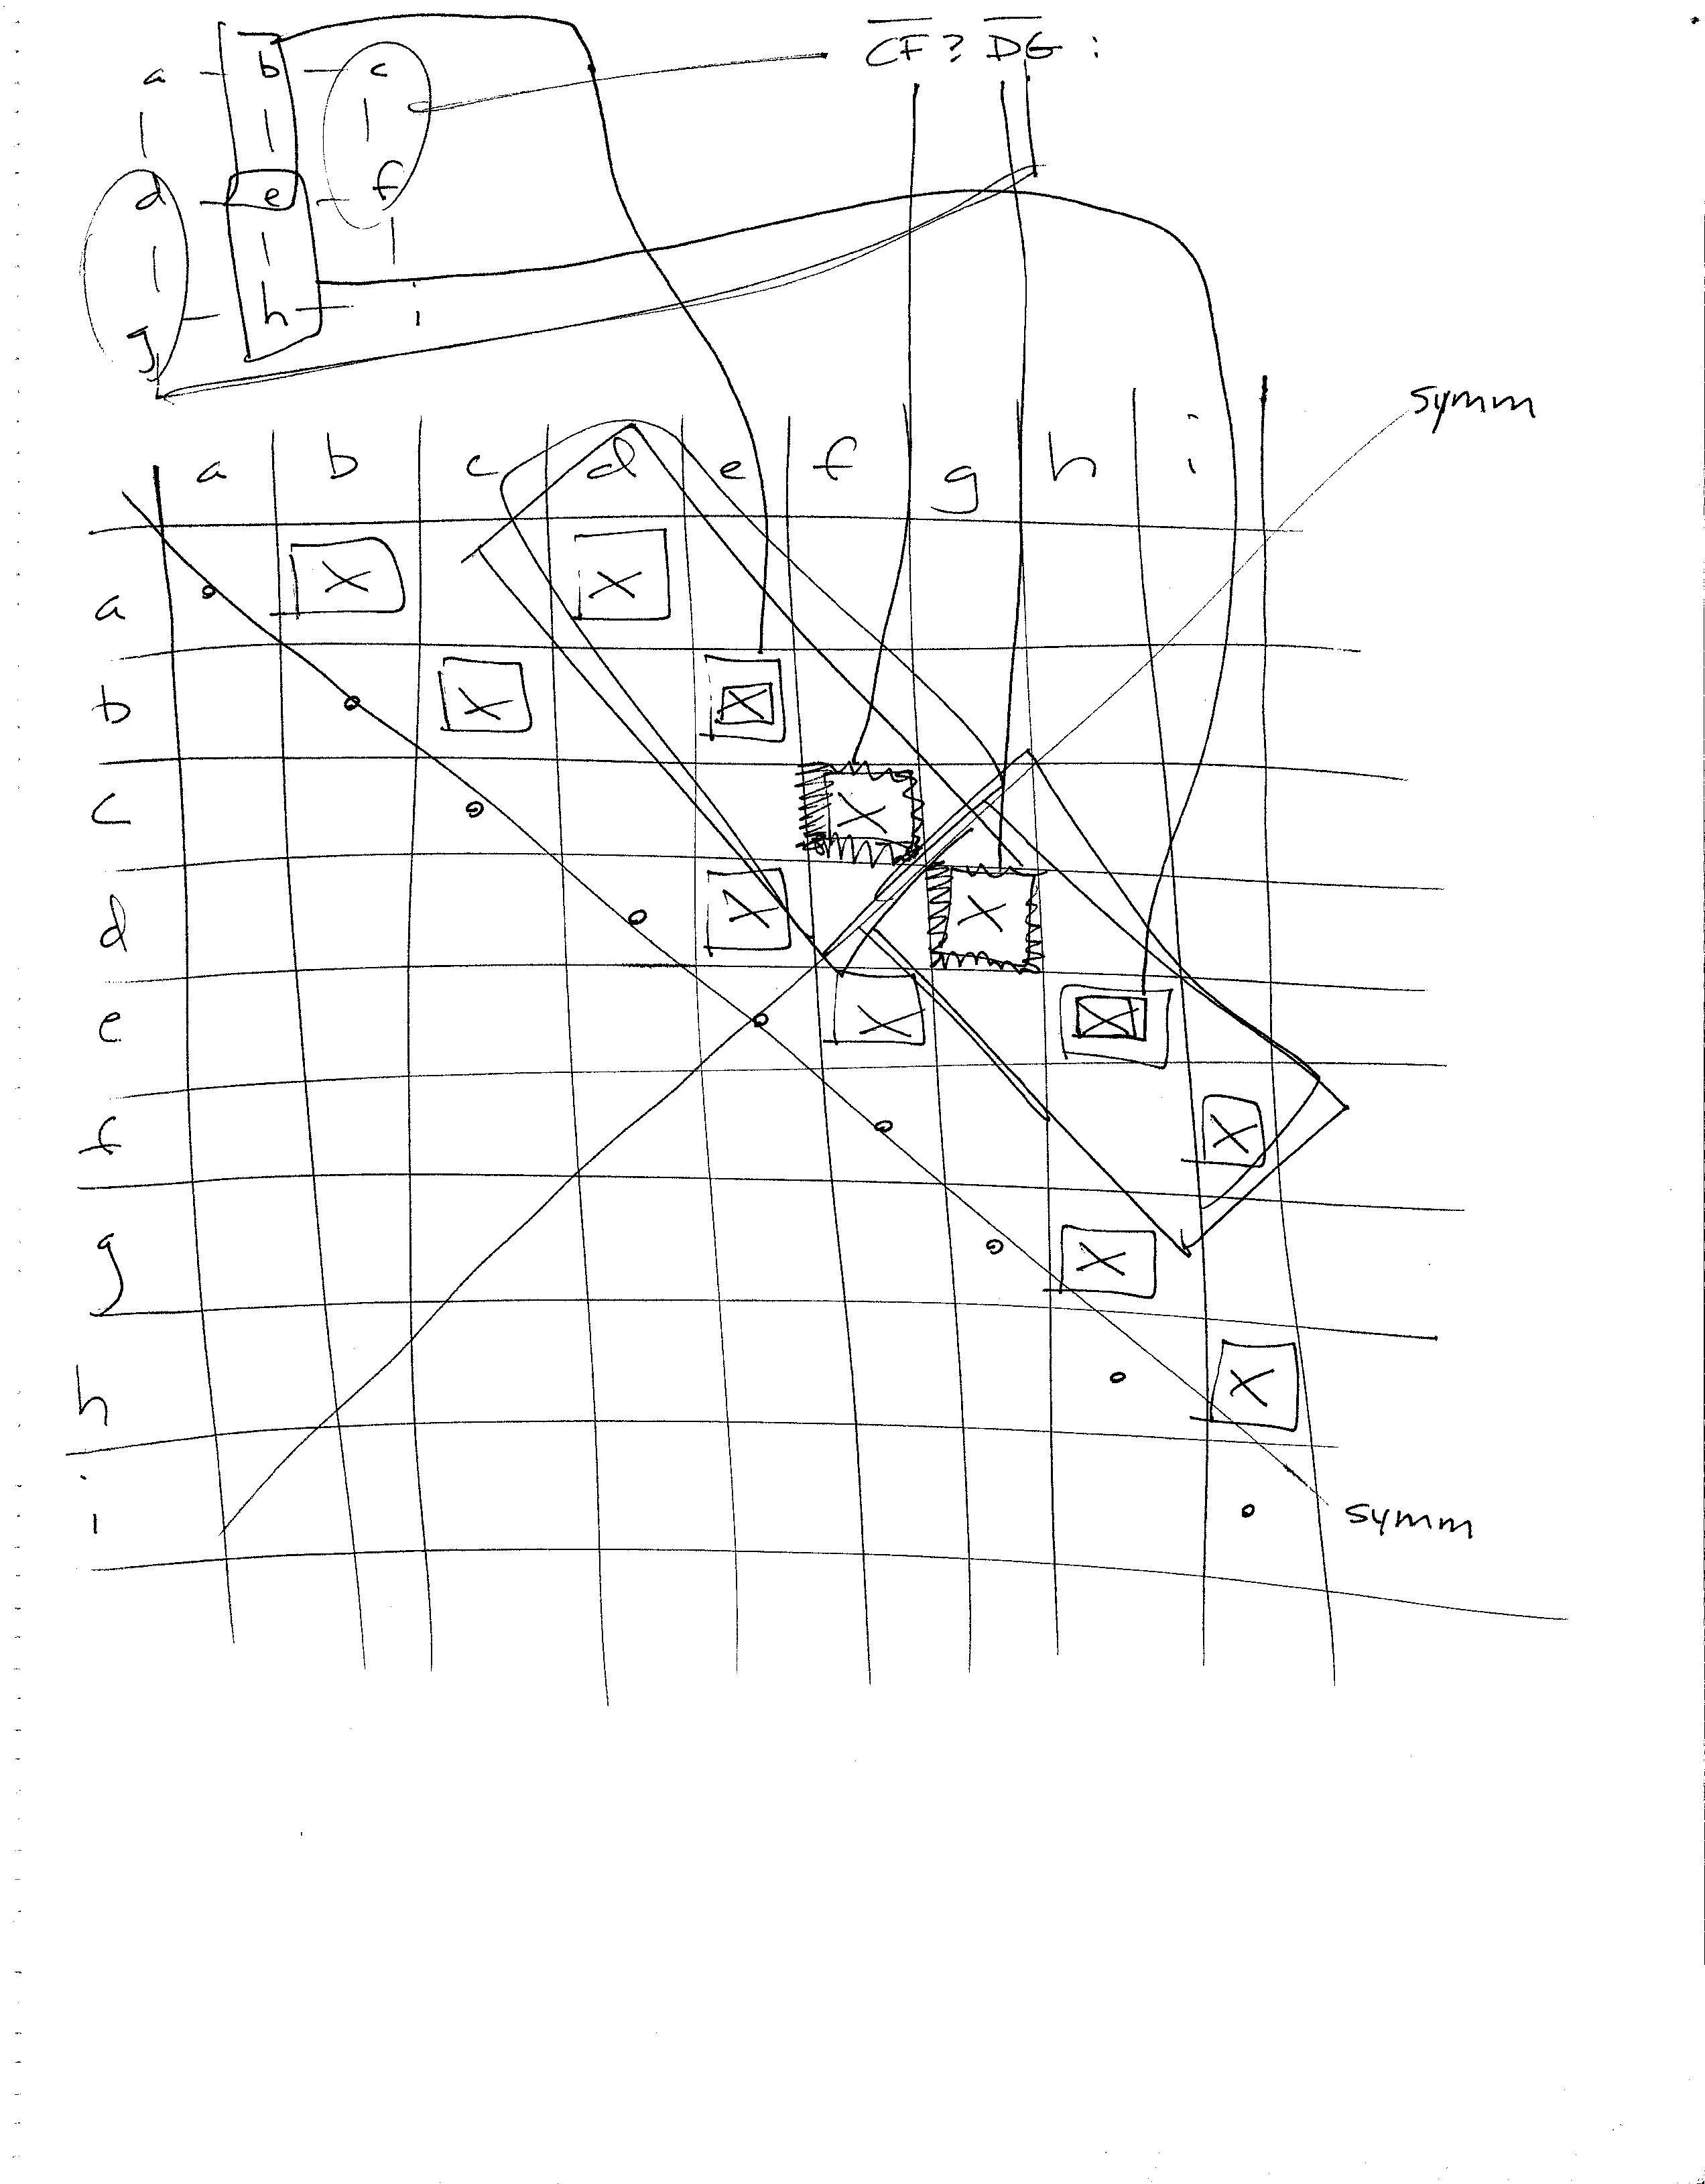 CF? DG :
a – b – c
d – e – f
g – h – i
symm
a b c d e f g h i
a X X
b X X
c X
d X X
e X X
f X
g X
h X
i
symm